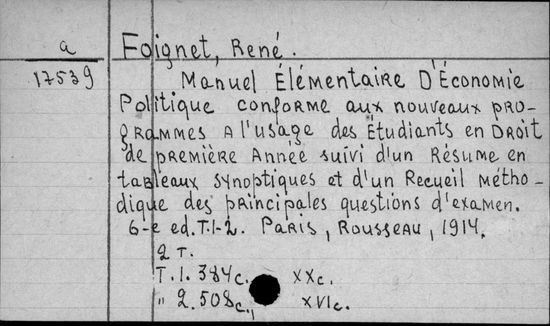 a
17539
Foignet, René.
Manuel Élémentaire D'Économie
Politique conforme aux nouveaux pro-
grammes a l'usage des Étudiants en Droit
de première Année suivi d'un Résume en
tableaux synoptiques et d'un Recueil métho-
dique des principales questions d'examen.
6-e ed. T.1-2. Paris, Rousseau, 1914.
2 T.
T.1. 384c. XXc.
" 2. 508c., XVIc.